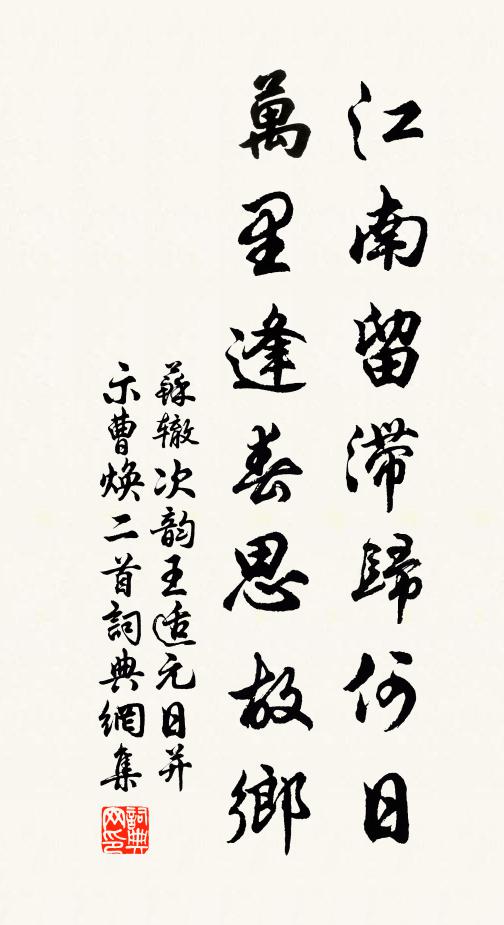 江南留滞歸何日
萬里逢春思故鄉
蘇辙次韵王适元日并
示曹煥二首詞典網集
詞典网印